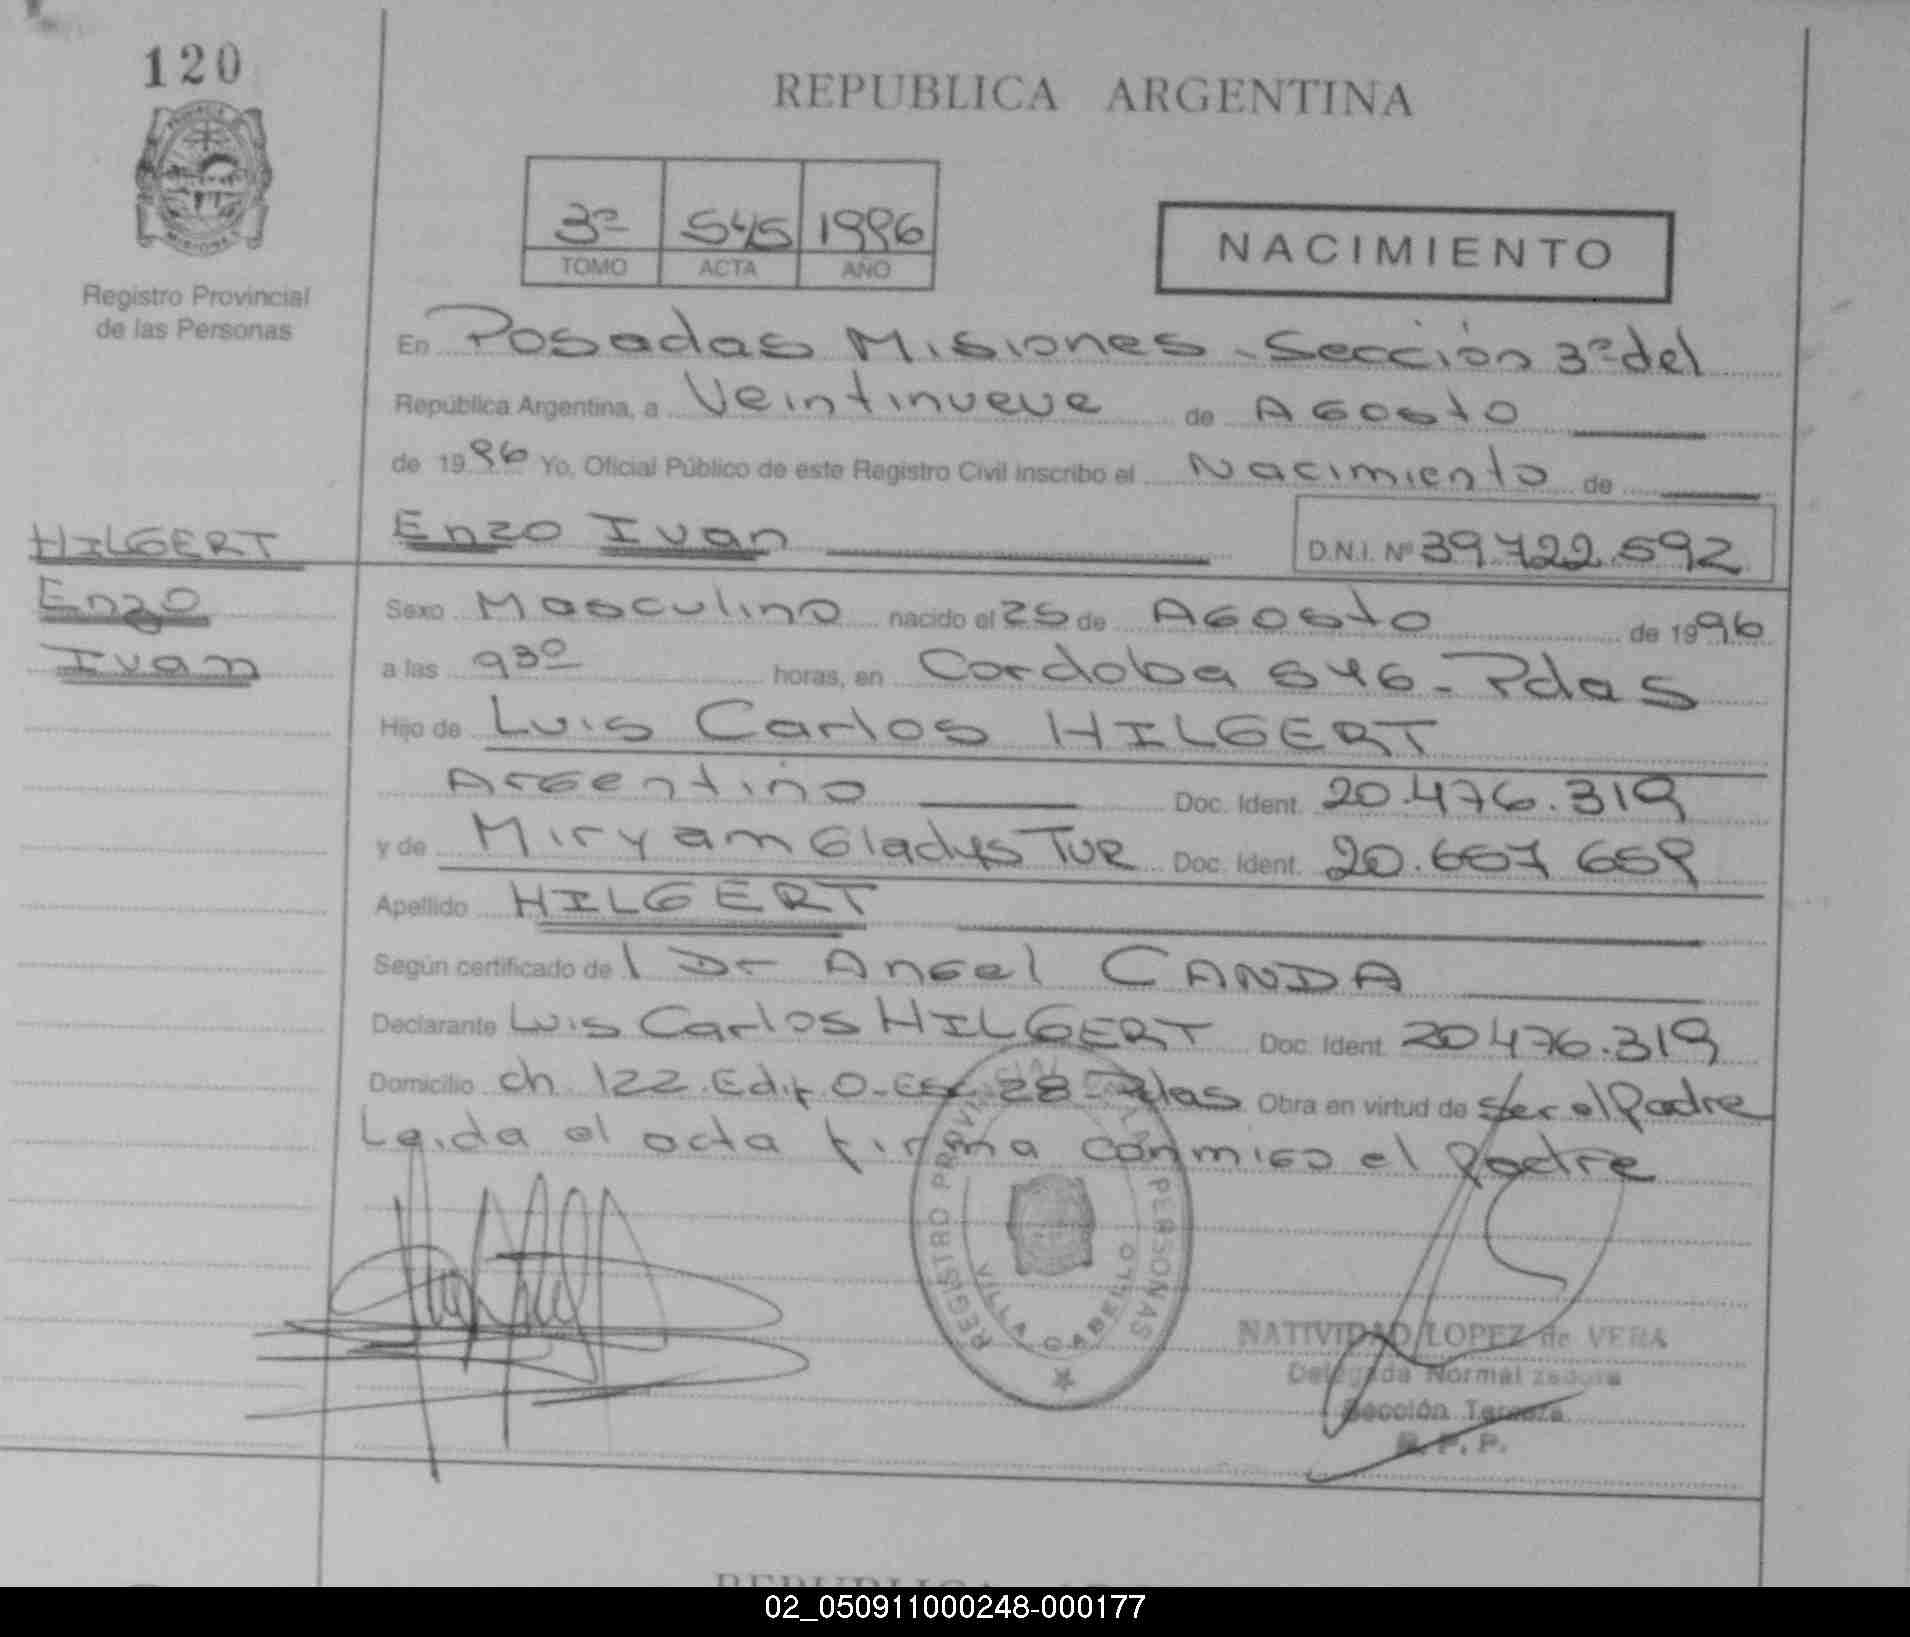 120
REPUBLICA ARGENTINA
3º 545 1996
TOMO ACTA AÑO
NACIMIENTO
Registro Provincial
de las Personas
En Posadas Misiones - Sección 3º del
República Argentina, a Veintinueve de Agosto
de 1996 Yo, Oficial Público de este Registro Civil inscribo el Nacimiento de
HILGERT
Enzo
Ivan
Enzo Ivan D.N.I. Nº 39.722.592
Sexo Masculino nacido el 25 de Agosto de 1996
a las 930 horas, en Cordoba 546 - Pdas
Hijo de Luis Carlos HILGERT
Argentino Doc. Ident. 20.476.319
y de Miryam Gladys TUR Doc. Ident. 20.667 659
Apellido HILGERT
Según certificado de l Dr Angel CANDA
Declarante Luis Carlos HILGERT Doc. Ident. 20476.319
Domicilio ch 122 Edif 0-Esc 28 - Pdas Obra en virtud de ser el Padre
Leida el acta firma conmigo el Padre
REGISTRO PROVINCIAL DE LAS PERSONAS
VILLA CABELLO
NATIVIDAD LOPEZ de VERA
Delegada Normalizadora
Sección Tercera
R. P. P.
REPUBLICA
02_050911000248-000177